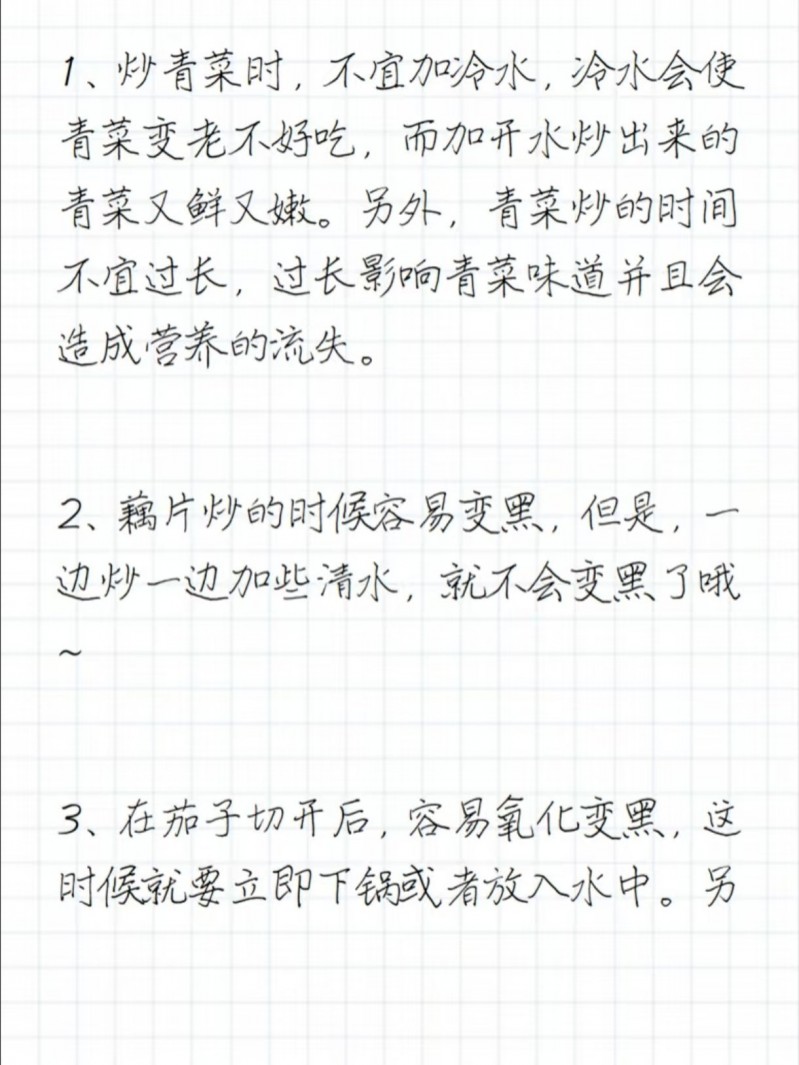 1、炒青菜时，不宜加冷水，冷水会使
青菜变老不好吃，而加开水炒出来的
青菜又鲜又嫩。另外，青菜炒的时间
不宜过长，过长影响青菜味道并且会
造成营养的流失。
2、藕片炒的时候容易变黑，但是，一
边炒一边加些清水，就不会变黑了哦
~
3、在茄子切开后，容易氧化变黑，这
时候就要立即下锅或者放入水中。另